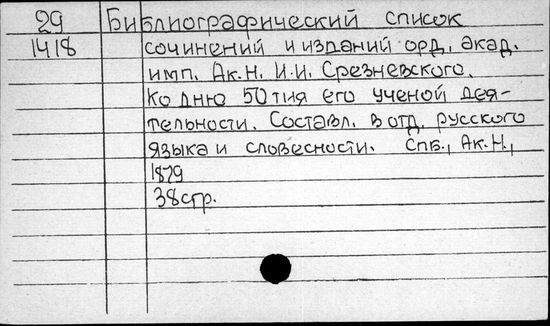 29 Библиографический список
1418 сочинений и изданий орд. акад.
имп. Ак.Н. И.И. Срезневского.
Ко дню 50тия его ученой дея-
тельности. Составл. в отд. русского
языка и словесности. Спб., Ак.Н.,
1879
38стр.